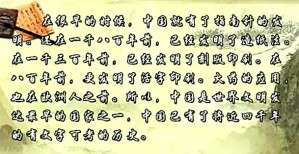 在很早的时候，中国就有了指南针的发
明。还在一千八百年前，已经发明了造纸法。
在一千三百年前，已经发明了刻版印刷。在
八百年前，更发明了活字印刷。火药的应用，
也在欧洲人之前。所以，中国是世界文明发
达最早的国家之一，中国已有了将近四千年
的有文字可考的历史。